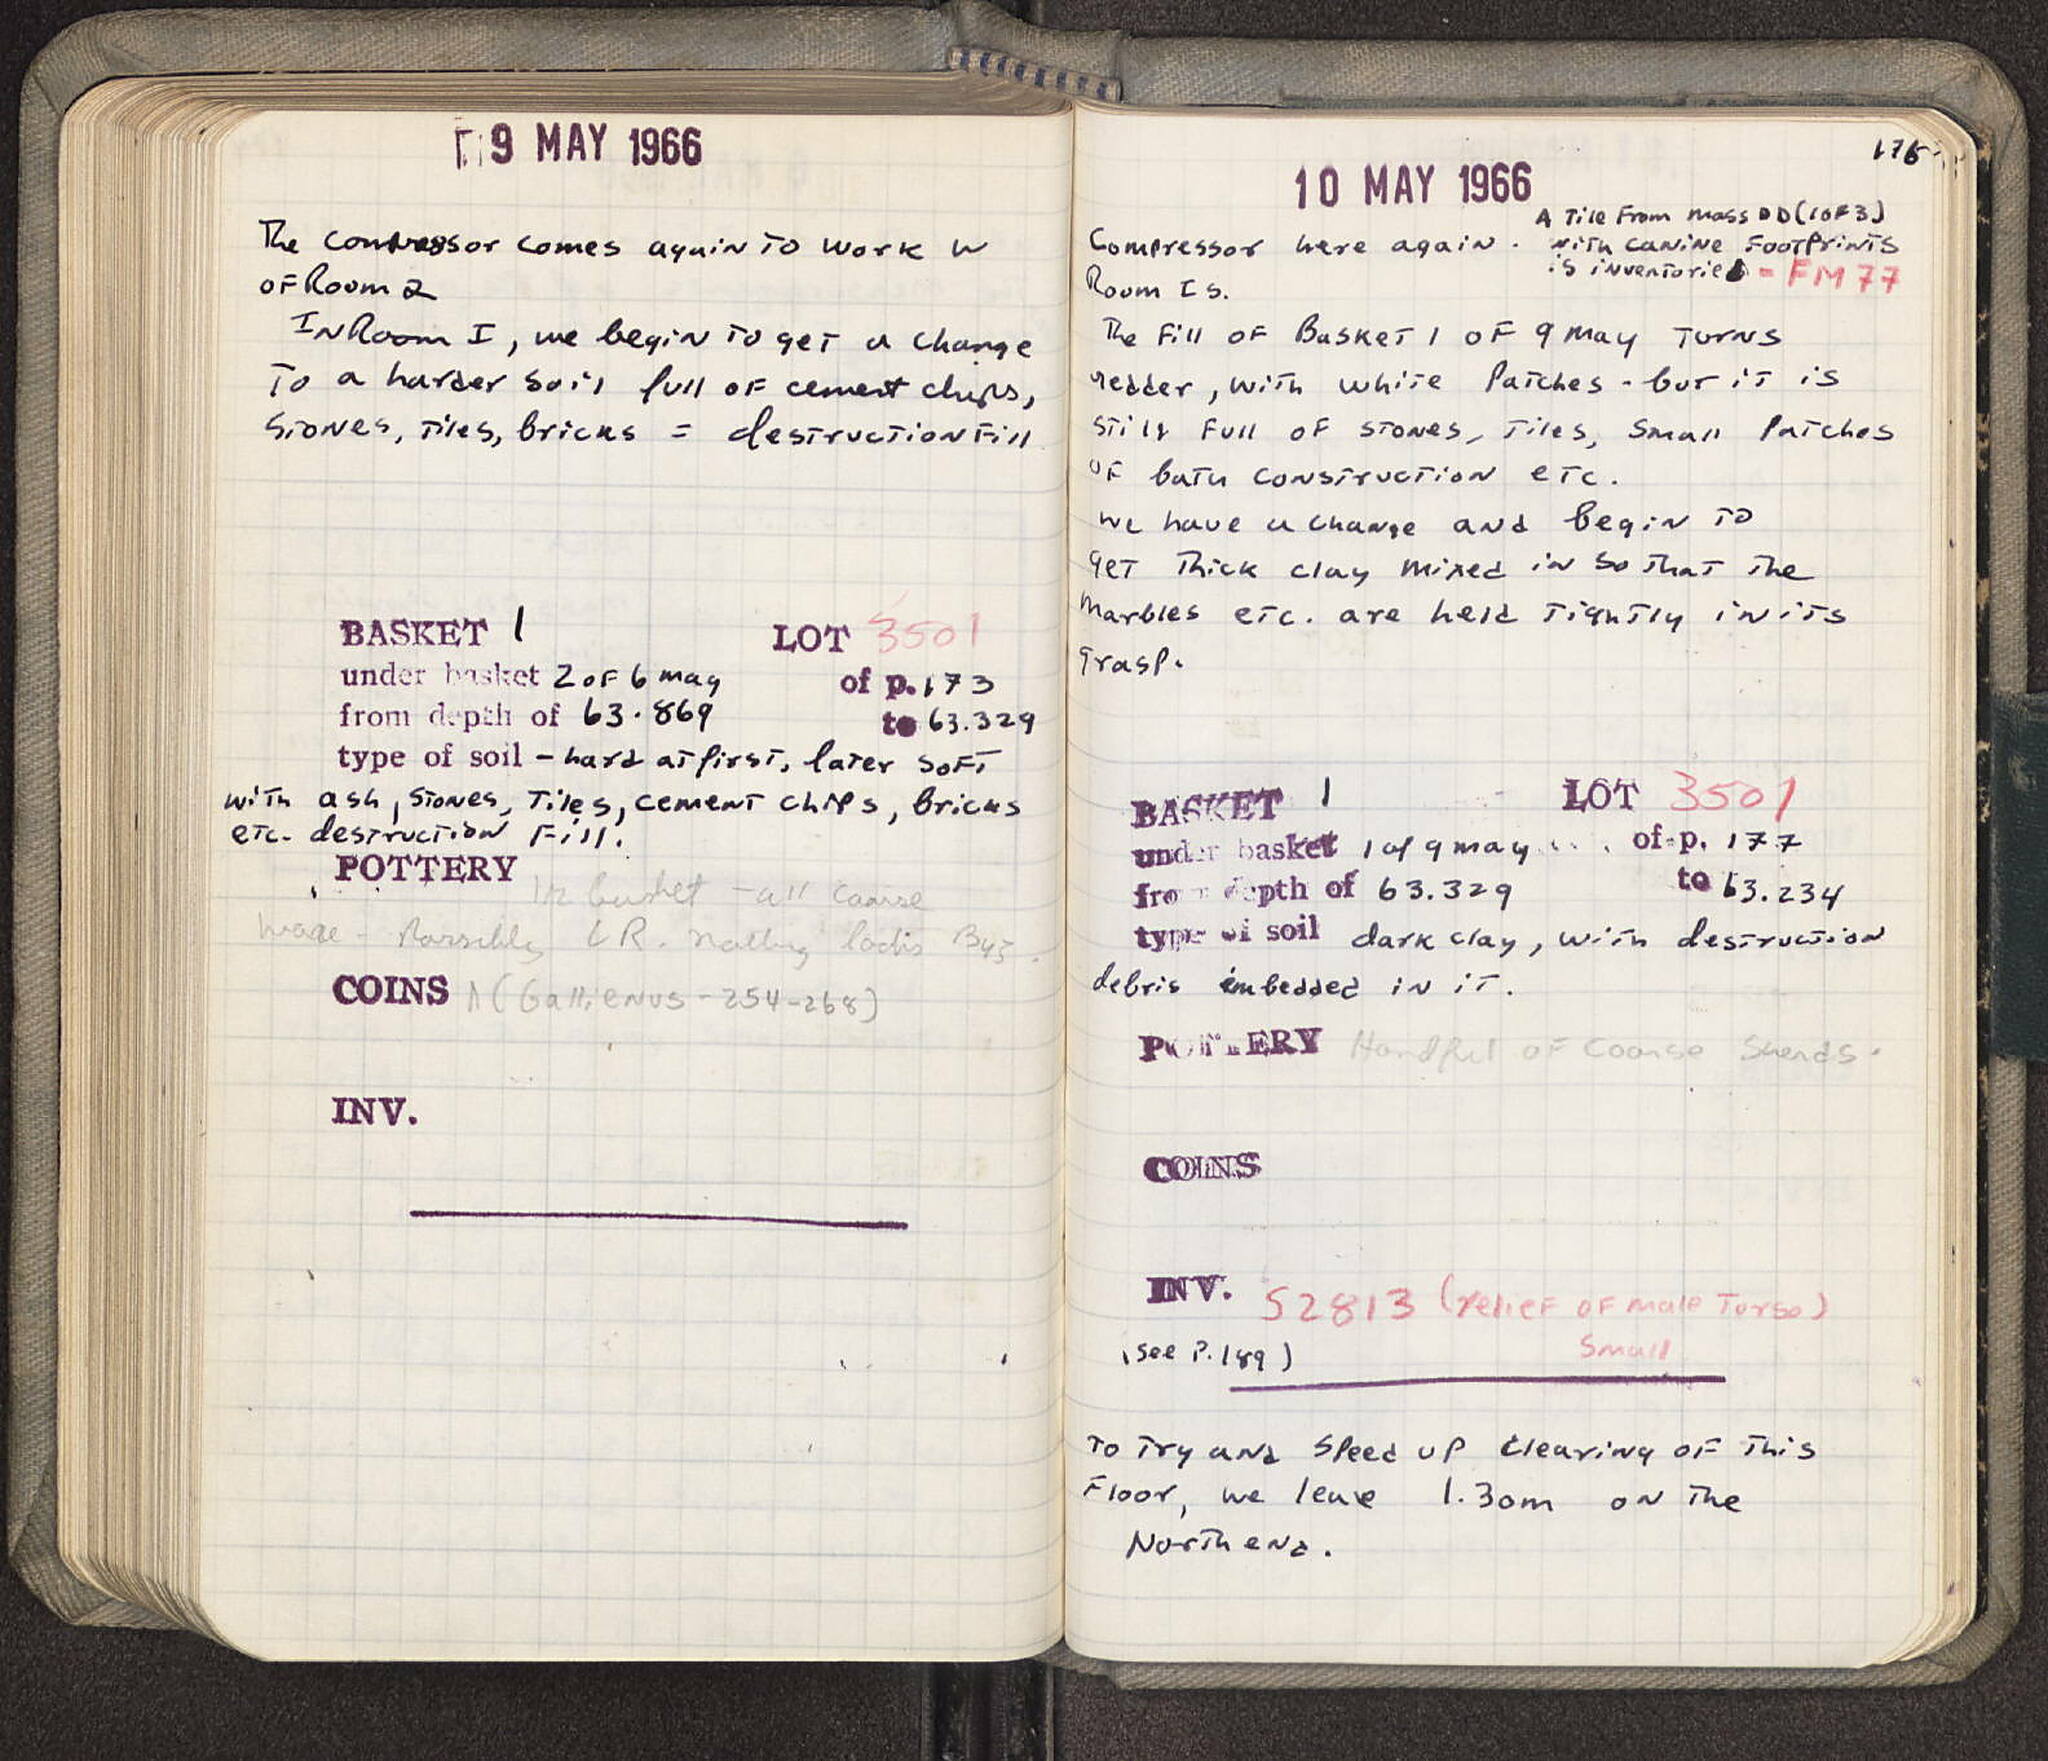 9 MAY 1966
The compressor comes again to work W
of Room 2
In Room I, we begin to get a change
to a harder soil full of cement chips,
stones, tiles, bricks = destruction fill
BASKET 1 LOT 3501
under basket 2 of 6 may of p. 173
from depth of 63.869 to 63.329
type of soil - hard at first, later soft
with ash, stones, tiles, cement chips, bricks
etc. destruction fill.
POTTERY 1/2 basket - all coarse
ware - Possibly LR. nothing looks Byz.
COINS 1 (Gallienus - 254-268)
INV.
10 MAY 1966
A Tile from mass DD (1 of 3)
with canine footprints
is inventoried = FM 77
Compressor here again.
Room I s.
The fill of Basket 1 of 9 may turns
redder, with white patches - but it is
still full of stones, tiles, small patches
of bath construction etc.
we have a change and begin to
get thick clay mixed in so that the
marbles etc. are held tightly in its
grasp.
BASKET 1 LOT 3501
under basket 1 of 9 may of p. 177
from depth of 63.329 to 63.234
type of soil dark clay, with destruction
debris embedded in it.
POTTERY Handful of coarse sherds.
COINS
INV. S2813 (relief of male torso)
small
(see P. 189)
to try and speed up clearing of this
floor, we leave 1.30m on the
North end.